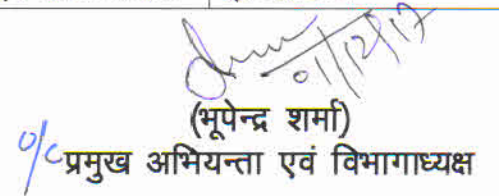 01/12/17
(भूपेन्द्र शर्मा)
o/c प्रमुख अभियन्ता एवं विभागाध्यक्ष